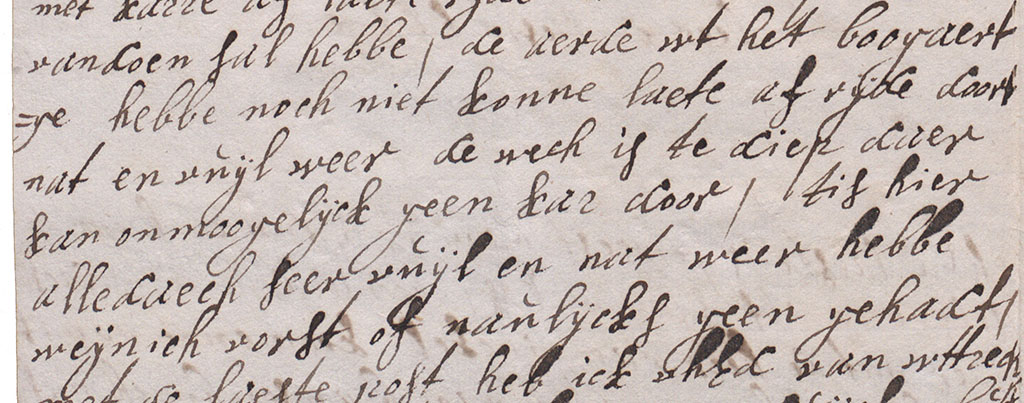 met karre af
vandoen sal hebbe / de aerde wt het boogaert
=ge hebbe noch niet konne laete af rijde door
nat en vuijl weer de wech is te diep daer
kan onmoogelijck geen kar door / tis hier
alledaech seer vuijl en nat weer hebbe
weijnich vorst of naulijcks geen gehadt /
met de laeste post heb ick van wttrech